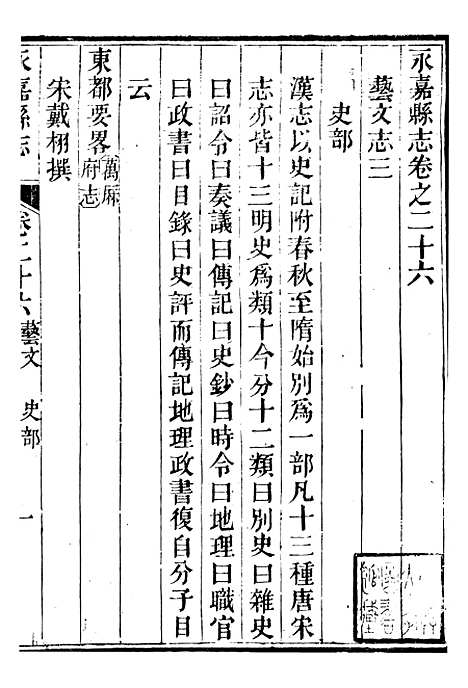 永嘉縣志卷之二十六
藝文志三
史部
漢志以史記附春秋至隋始別爲一部凡十三種唐宋
志亦皆十三明史爲類十今分十二類曰別史曰雜史
曰詔令曰奏議曰傳記曰史鈔曰時令曰地理曰職官
曰政書曰目錄曰史評而傳記地理政書復自分子目
云
東都要畧萬厤府志
宋戴栩撰
永嘉縣志 卷二十六藝文 史部 一